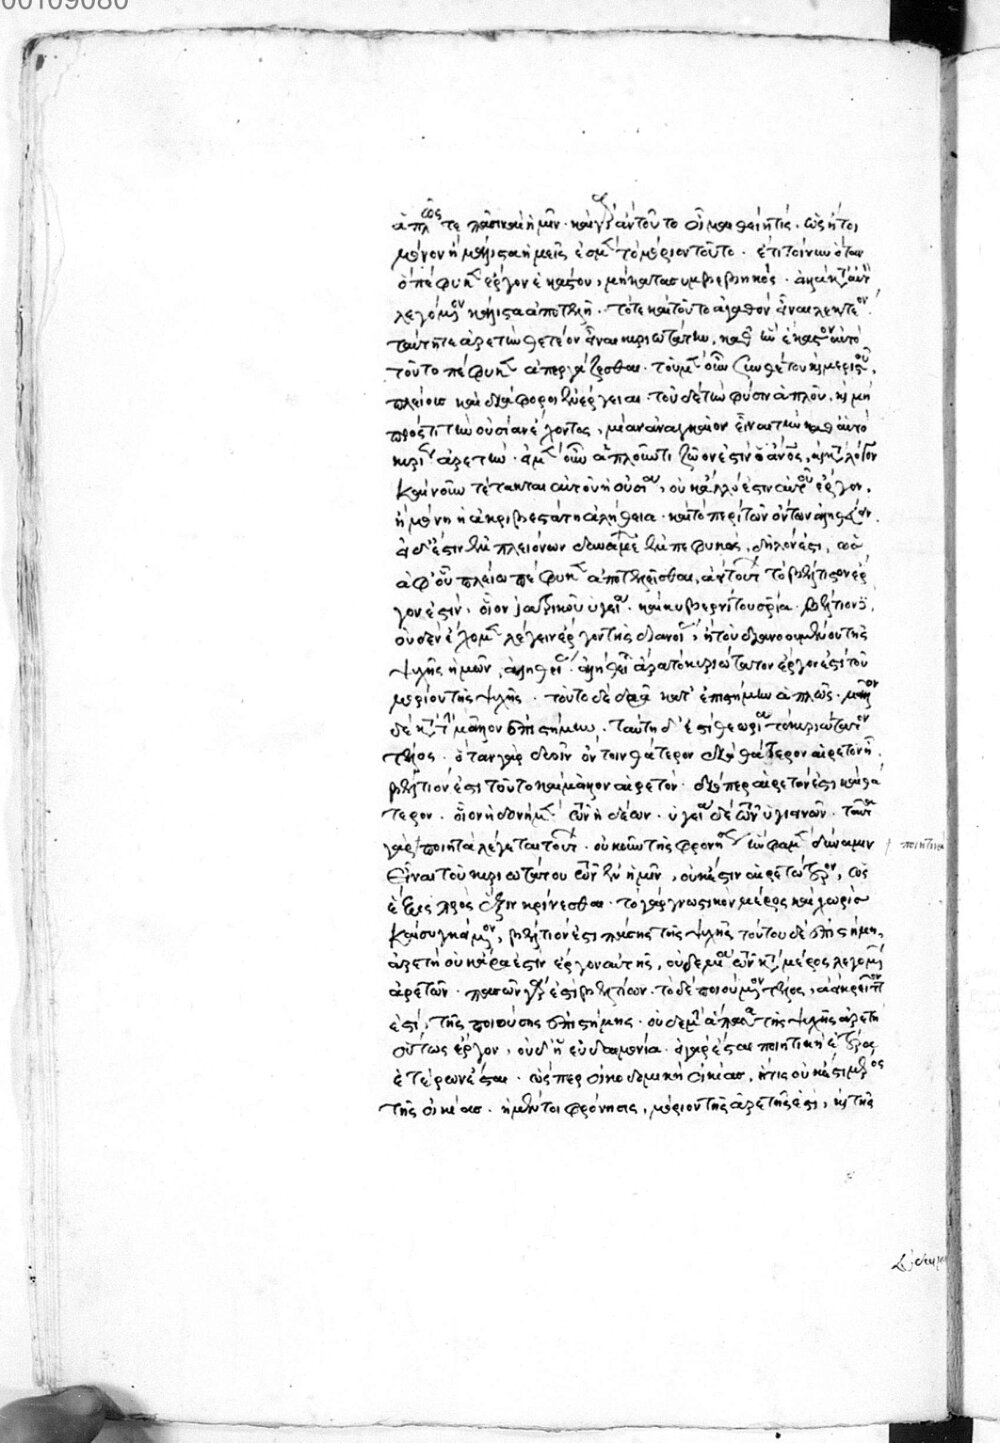 00109080
ἁπλῶς τε πᾶσι καὶ ἡμῖν · κἂν γὰρ ἂν τοῦτο οἶμαι θείη τις · ὡς ἤτοι
μόνον ἢ μάλιστα ἡμεῖς ἐσμὲν τὸ μόριον τοῦτο · ἔτι τοίνυν ὅταν
ὃ πέφυκεν ἔργον ἑκάστου, μὴ κατὰ συμβεβηκὸς · ἀλλὰ καθ' αὑτὸ
λεγόμενον κάλλιστα ἀποτελῇ · τότε καὶ τοῦτο ἀγαθὸν εἶναι λεκτέον ·
ταύτην τε ἀρετὴν θετέον εἶναι κυριωτάτην, καθ' ἣν ἕκαστον αὐτὸ
τοῦτο πέφυκεν ἀπεργάζεσθαι · τοῦ μὲν οὖν συνθέτου καὶ μεριστοῦ,
πλείους καὶ διάφοροι ἐνέργειαι · τοῦ δὲ τὴν φύσιν ἁπλοῦ, καὶ μὴ
πρός τι τὴν οὐσίαν ἔχοντος, μίαν ἀναγκαῖον εἶναι τὴν καθ' αὑτὸ
κυρίως ἀρετήν · εἰ μὲν οὖν ἁπλοῦν τι ζῷόν ἐστιν ὁ ἄνθρωπος, καὶ κατὰ λόγον
καὶ νοῦν τέτακται αὐτοῦ ἡ οὐσία, οὐκ ἄλλο ἐστὶν αὐτοῦ ἔργον,
ἢ μόνη ἡ ἀκριβεστάτη ἀλήθεια · καὶ τὸ περὶ τῶν ὄντων ἀληθεύειν ·
εἰ δ' ἐστὶν ἐκ πλειόνων δυνάμεων ἐμπεφυκὸς, δῆλόν ἐστι, ὡς
ἀφ' οὗ πλείω πέφυκεν ἀποτελεῖσθαι, ἀεὶ τούτων τὸ βέλτιστον ἔρ
γον ἐστίν · οἷον ἰατρικοῦ ὑγεία · καὶ κυβερνήτου σωτηρία · βέλτιον δ'
οὐδὲν ἔχομεν λέγειν ἔργον τῆς διανοίας, ἢ τοῦ διανοουμένου τῆς
ψυχῆς ἡμῶν, ἀληθείας · ἀλήθεια ἄρα τὸ κυριώτατον ἔργον ἐστὶ τοῦ
μορίου τῆς ψυχῆς · τοῦτο δὲ δρᾷ κατ' ἐπιστήμην ἁπλῶς · μᾶλλον
δὲ κατὰ τὴν μᾶλλον ἐπιστήμην · ταύτῃ δ' ἐστὶ θεωρία τὸ κυριώτατον
τέλος · ὅταν γὰρ δυοῖν ὄντοιν θάτερον διὰ θάτερον αἱρετὸν ᾖ ·
βέλτιόν ἐστι τοῦτο καὶ μᾶλλον αἱρετὸν · δι' ὅπερ αἱρετόν ἐστι καὶ θά
τερον · οἷον ἡδονὴ μὲν τῶν ἡδέων · ὑγεία δὲ τῶν ὑγιεινῶν · ταῦτα
γὰρ ποιητὰ λέγεται τούτων · οὐκοῦν τῆς φρονήσεως ἥν φαμεν δύναμιν
εἶναι τοῦ κυριωτάτου τῶν ἐν ἡμῖν, οὐκ ἔστιν αἱρετώτερον, ὡς
ἕξις πρὸς ἕξιν κρίνεσθαι · τὸ γὰρ γνωστικὸν μέρος καὶ χωρὶς
καὶ συγκείμενον, βέλτιόν ἐστι πάσης τῆς ψυχῆς τούτου δὲ ἐπιστήμη,
ἀρετὴ οὐκ ἄρα ἐστὶν ἔργον αὐτῆς, οὐδεμία τῶν κατὰ μέρος λεγομένων
ἀρετῶν · πασῶν γάρ ἐστι βελτίων · τὸ δὲ ποιούμενον τέλος, ἀεὶ κρεῖττόν
ἐστι, τῆς ποιούσης ἐπιστήμης · οὐδὲ μὴν ἅπασα τῆς ψυχῆς ἀρετὴ
οὕτως ἔργον, οὐδ' ἡ εὐδαιμονία · εἰ γὰρ ἔσται ποιητικὴ ἕτερος
ἑτέρων ἔσται · ὥσπερ οἰκοδομικὴ οἰκίας, ἥτις οὐκ ἔστι μέρος
τῆς οἰκίας · ἡ μέντοι φρόνησις, μόριον τῆς ἀρετῆς ἐστι, καὶ τῆς
ποιητικὰ